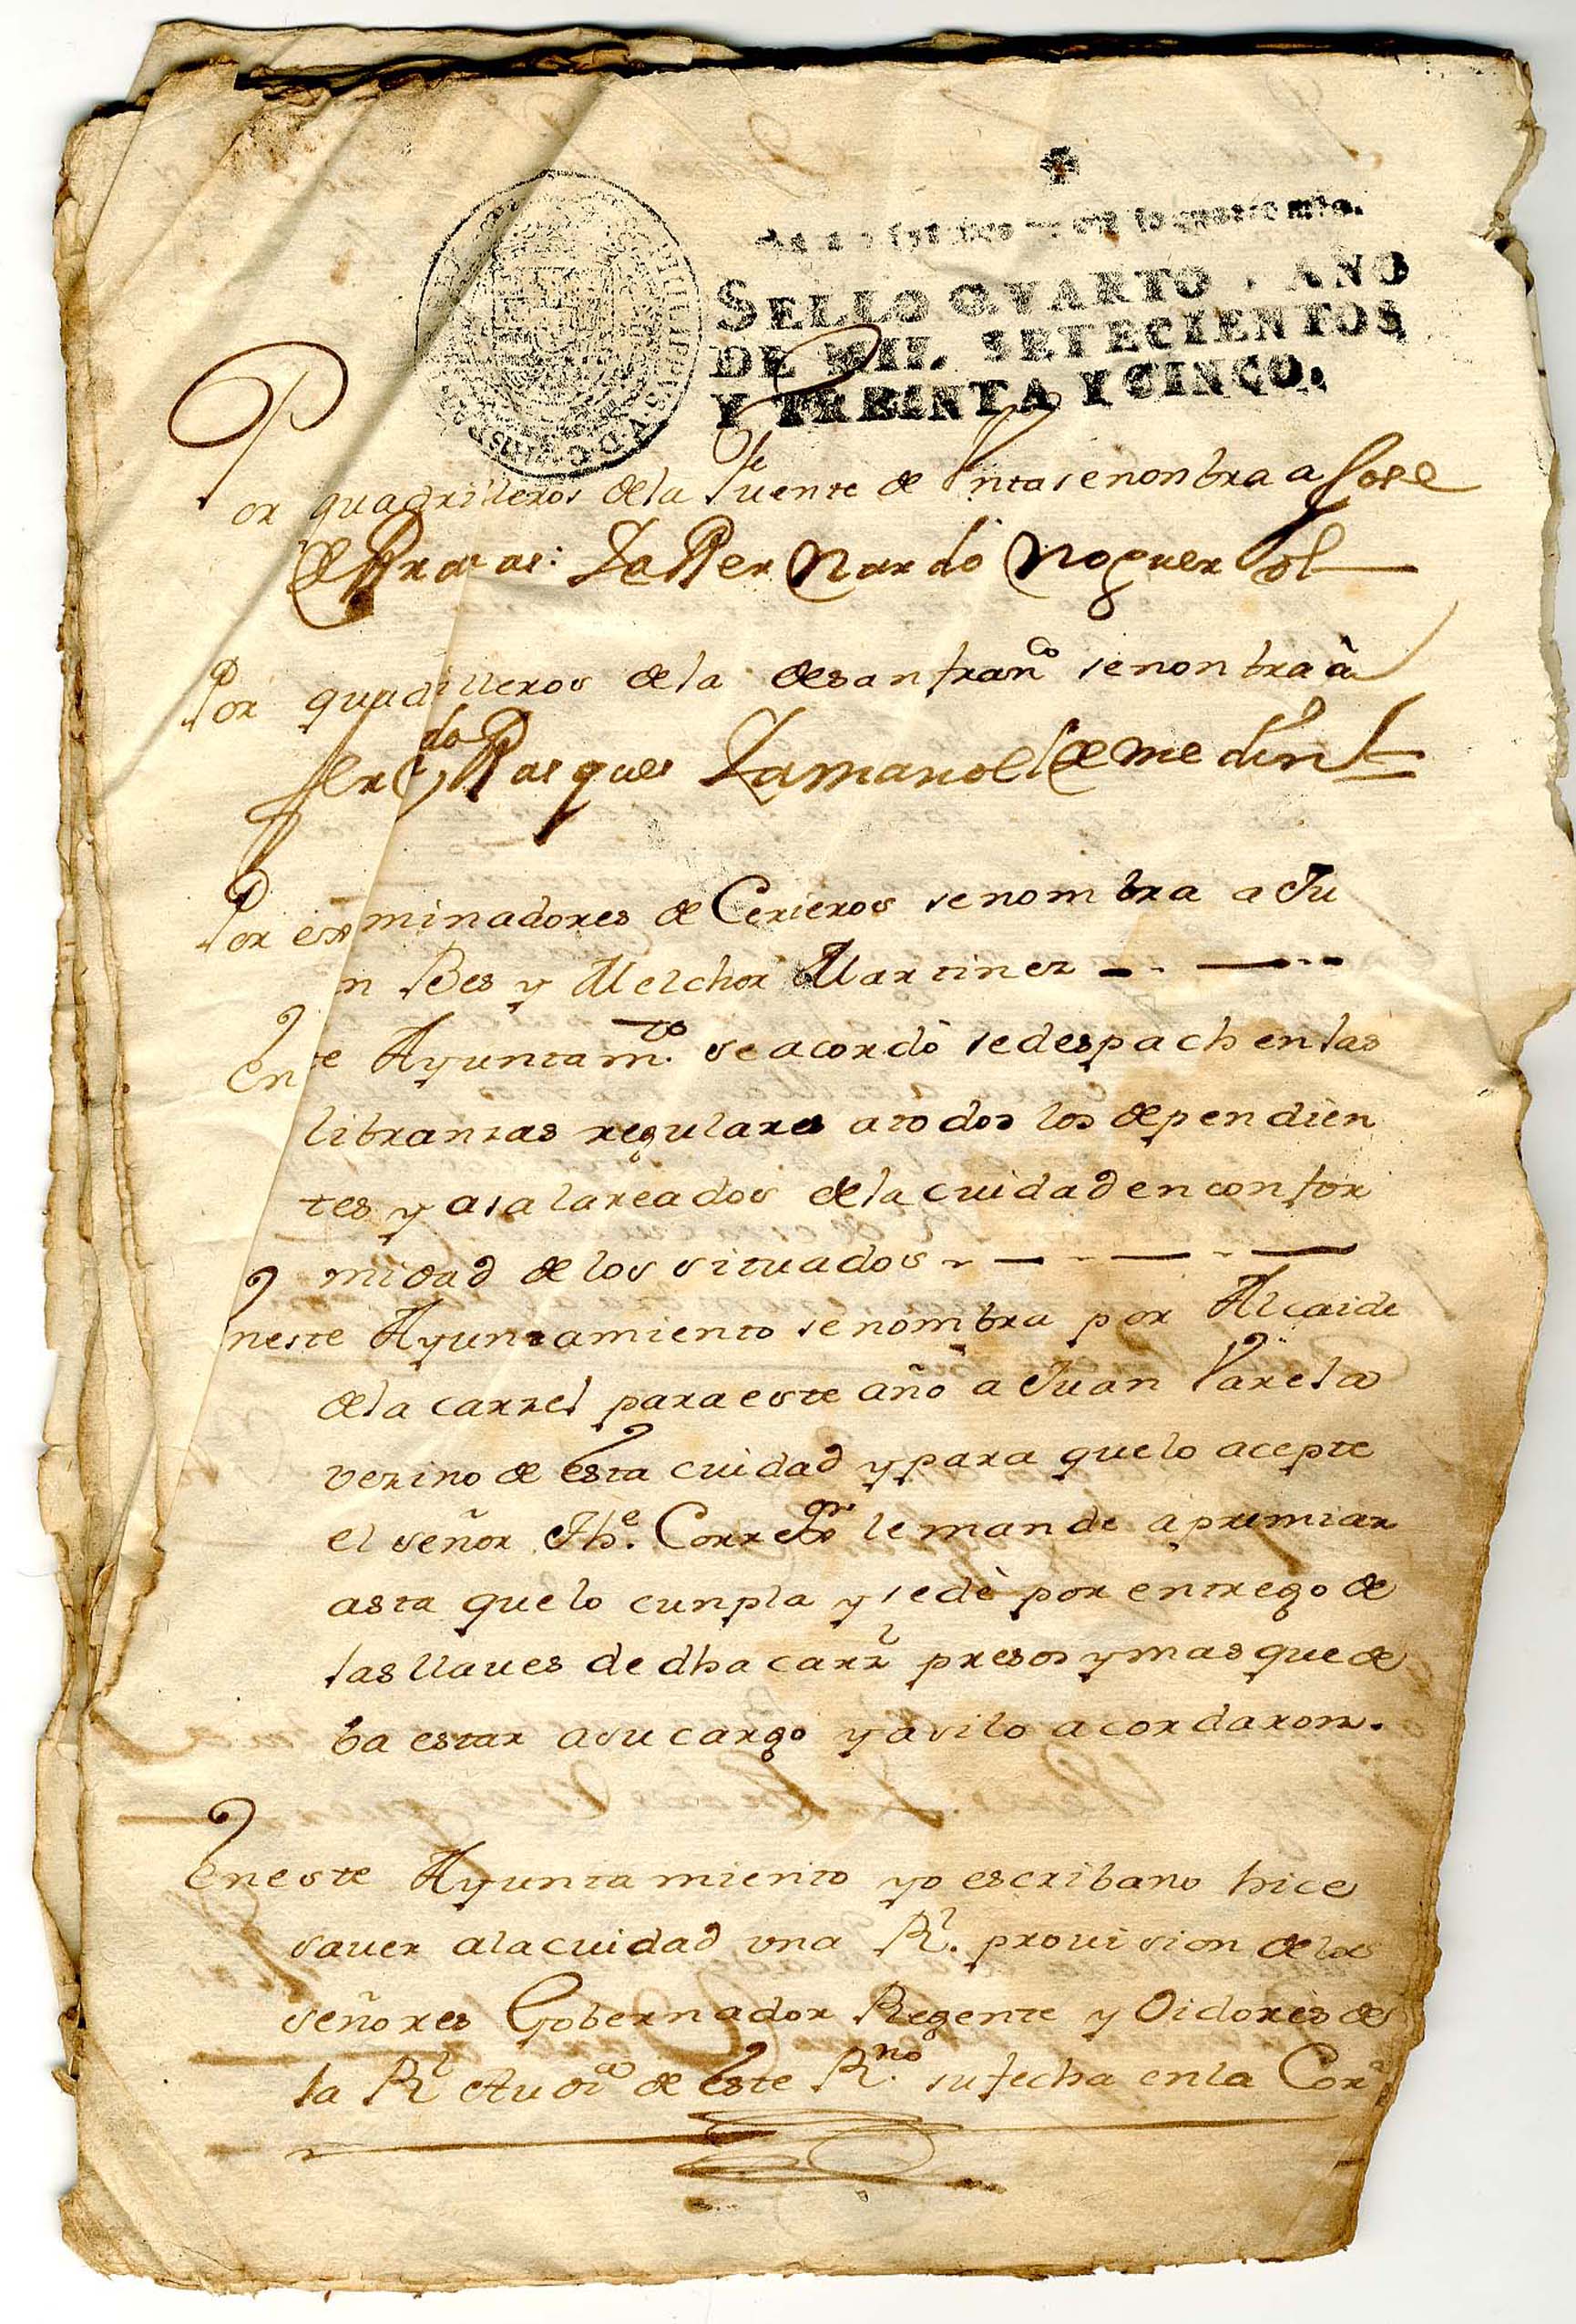 SELLO QVARTO, AÑO
DE MIL SETECIENTOS
Y TREINTA Y CINCO.
Por quadrilleros de la Puente de senonbra a Jose
Noguerol
Por quadrilleros dela desanfranco senonbra à
Por examinadores de Cerieros se nombra a Ju
n Bes y Melchor Martinez
En te Ayuntamto. se acordò sedespachenlas
libranzas regulares atodos los dependien
tes y asalareados dela cuidad en confor
midad de los situados
neste Ayuntamiento senombra por Alcaide
dela carzel para este año a Juan Varela
vezino de Esta cuidad y para quelo acepte
el señor Corregor le mande apremiar
asta quelo cunpla y sedè por entrego de
las llaues de dha carzl presos y mas quede
ba estar asu cargo y asilo acordaron.
Eneste Ayuntamiento yo escribano hice
sauer ala cuidad vna Rl. prouision delos
señores Gobernador Regente y Oidores de
la Rl Audia de Este Rno. su fecha en la Cora